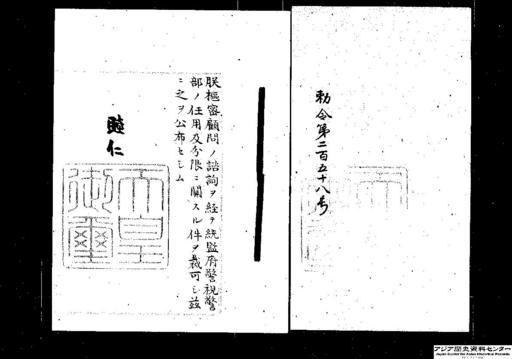 勅令第二百五十八号
朕枢密顧問ノ諮詢ヲ経テ統監府警視警
部ノ任用及分限ニ関スル件ヲ裁可シ茲
ニ之ヲ公布セシム
睦仁
天皇
御璽
アジア歴史資料センター
Japan Center for Asian Historical Records